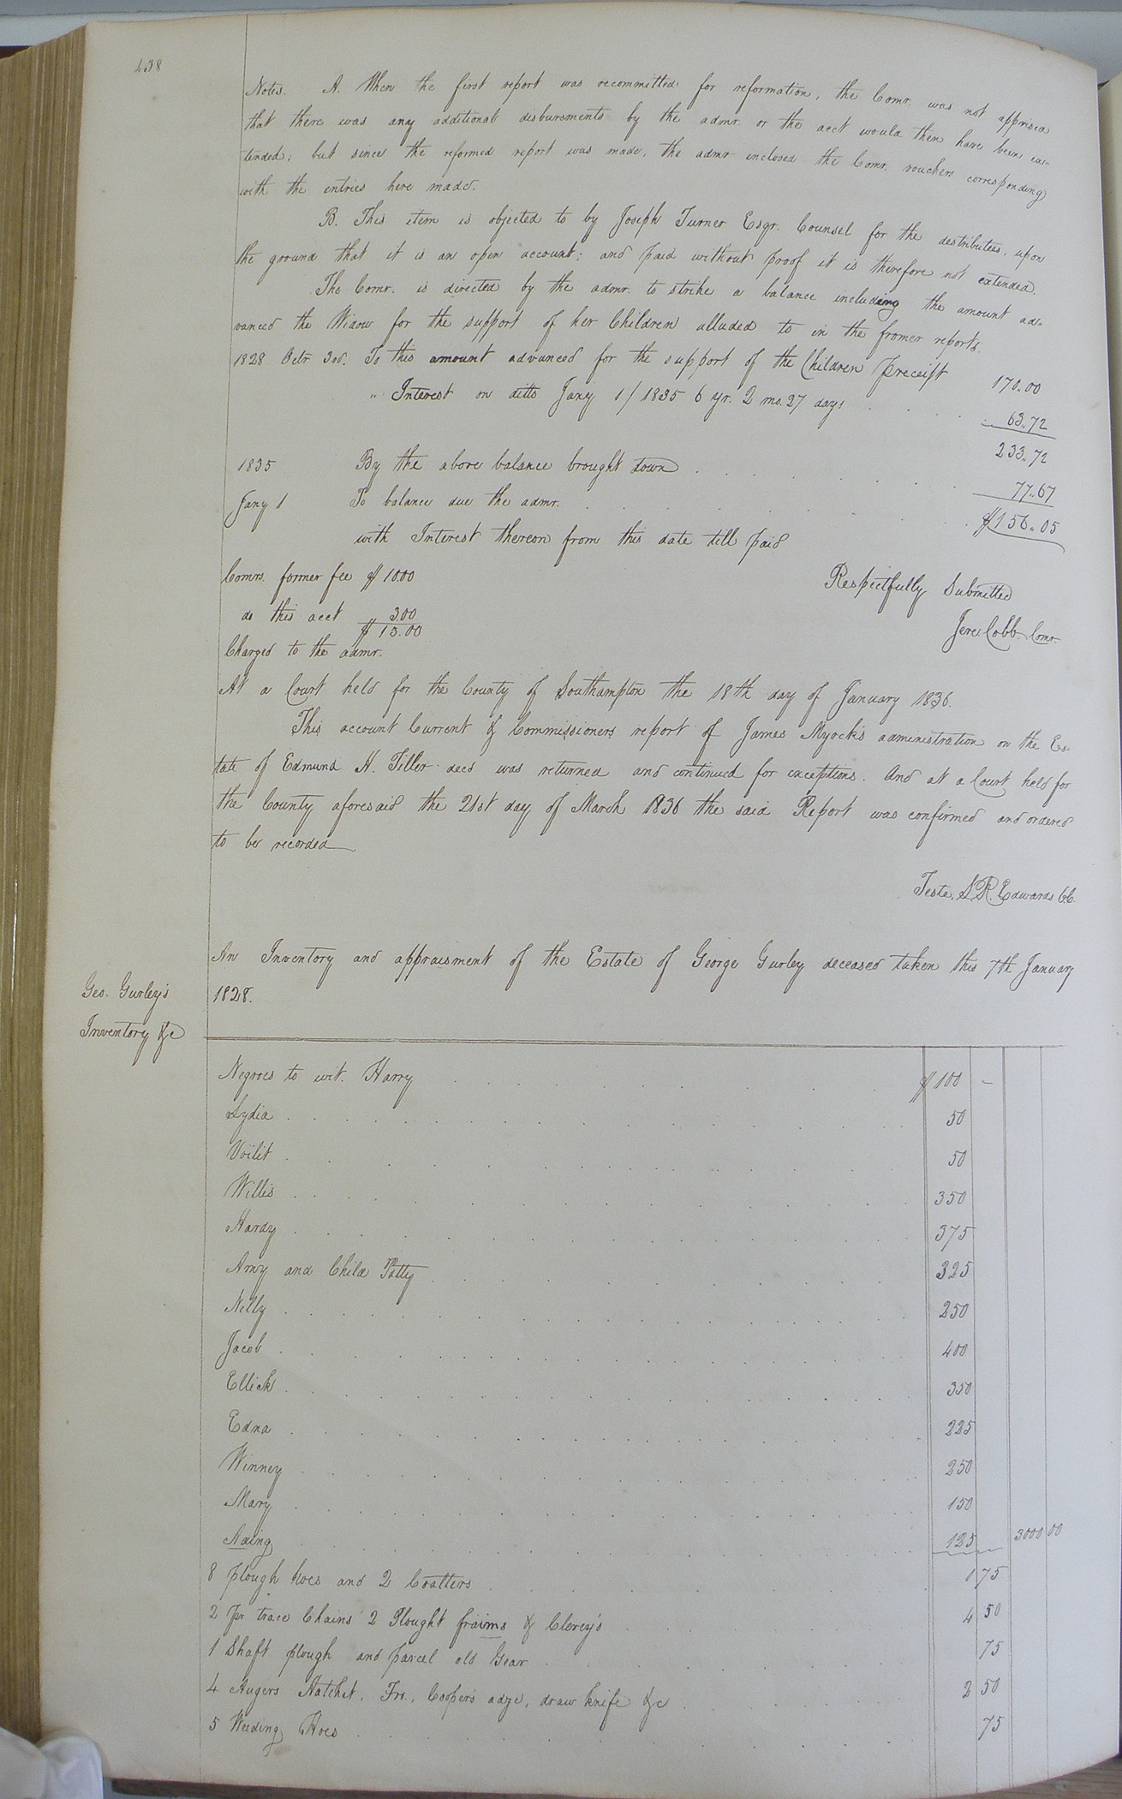 438
Notes. A. When the first report was recommitted for reformation, the Comr. was not apprised
that there was any additional disbursments by the admr. or the acct would then have been ex-
tended; but since the reformed report was made, the admr inclosed the Comr. vouchers corresponding
with the entries here made.
B. This item is objected to by Joseph Turner Esqr. Counsel for the distributees, upon
the ground that it is an open account; and paid without proof it is therefore not extended.
The Comr. is directed by the admr. to strike a balance including the amount ad-
vanced the Widow for the support of her Children alluded to in the fromer reports.
1828 Octr 3rd. To this amount advanced for the support of the Children p receipt 170.00
" Interest on ditto Jany 1/1835 6 yr. 2 mo. 27 days 63.72
233.72
1835 By the above balance brought down 77.67
Jany 1 To balance due the admr. $156.05
with Interest thereon from this date till paid
Comrs. former fee $10.00 Respectfully Submitted
do this acct 3.00 Jere Cobb Comr.
$13.00
Charged to the admr.
At a Court held for the County of Southampton the 18th day of January 1836.
This account Current & Commissioners report of James Myrick's administration on the Es-
tate of Edmund H. Tiller decd was returned and continued for exceptions. And at a Court held for
the County aforesaid the 21st day of March 1836 the said Report was confirmed and ordered
to be recorded
Teste, L R. Edwards CC.
An Inventory and appraisment of the Estate of George Gurley deceased taken this 7th January
1828.
Geo. Gurley's
Inventory &c
Negroes to wit. Harry $100 –
Lydia 50
Voilit 50
Willis 350
Hardy 375
Amy and Child Patty 325
Nelly 250
Jacob 400
Ellick 350
Edna 225
Winney 250
Mary 150
Axing 125 3000 00
8 plough hoes and 2 Coalters 1 75
2 Pr trace Chains 2 Plought fraims & Clevey's 4 50
1 Shaft plough and parcel old Gear 75
4 Augers Hatchet, Fro, Coopers adze, draw knife &c 2 50
5 Weeding Hoes 75